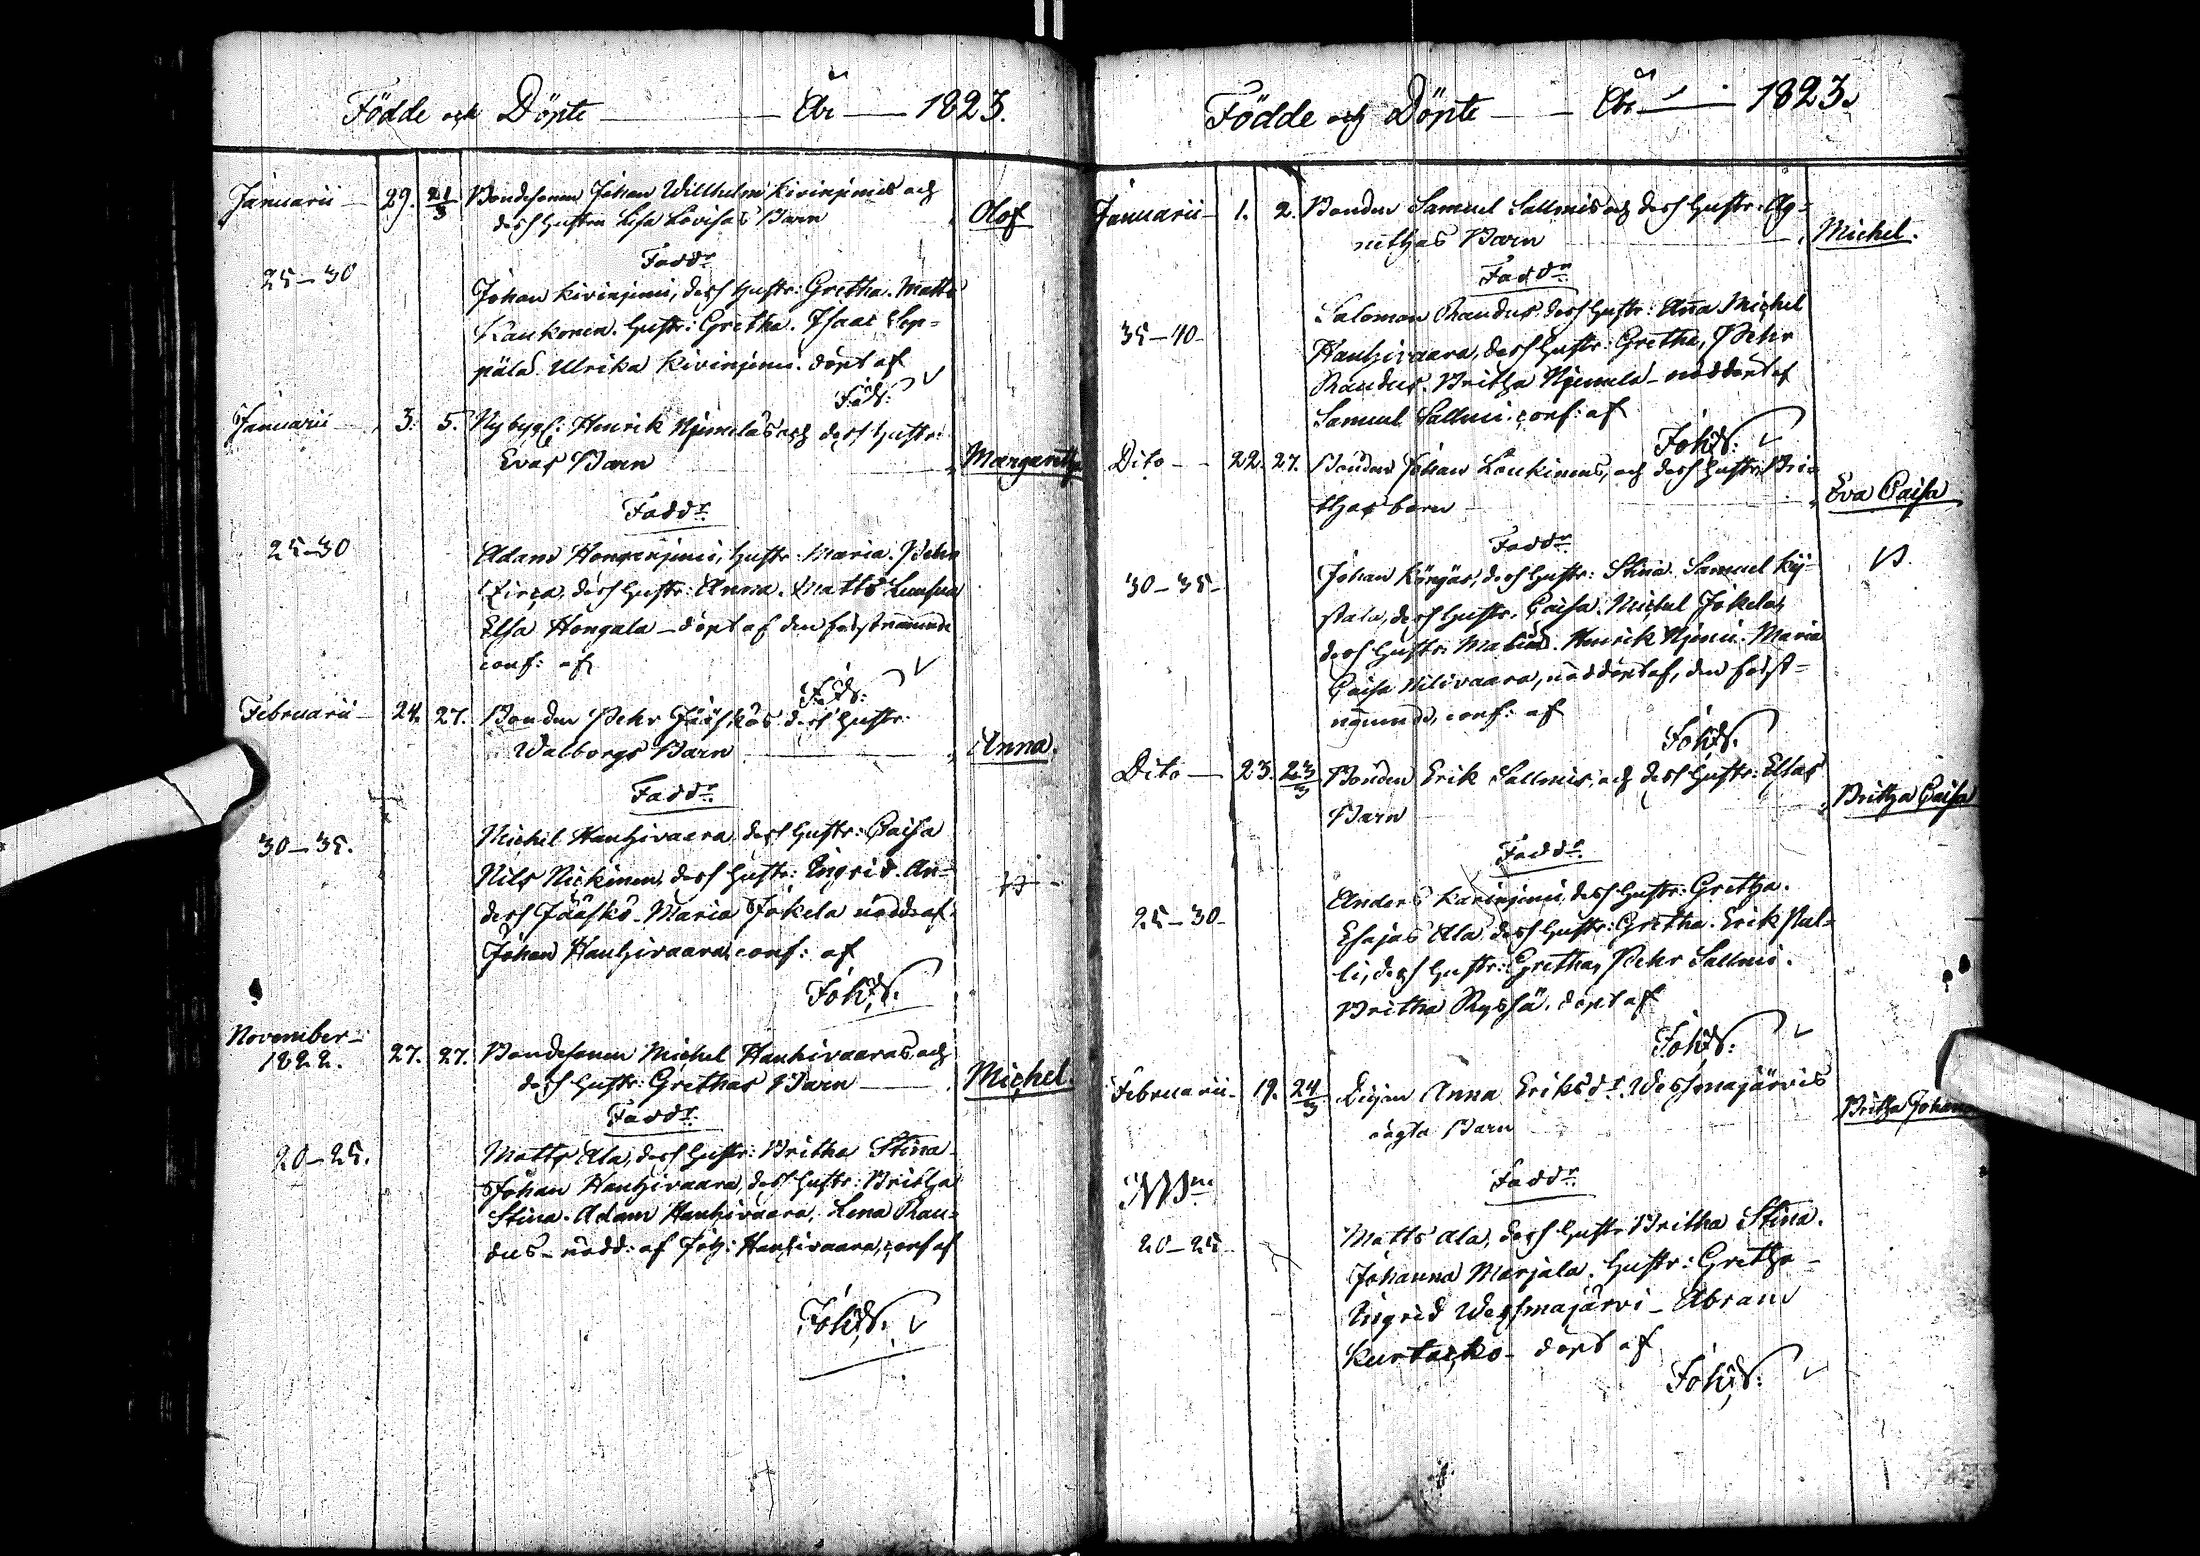 Födde och Döpte — År — 1823.
Januarii — 29. 21/3 Bondesonen Johan Willhelm Kivinjemis och
dess hustru Lisa Lovisas Barn Olof
Faddr:
25–30
Johan Kivinjemi, dess hustr: Gretha. Matts
Kaukonen. hustr: Gretha. Isaac Sep=
pälä. Ulrika Kivinjemi. döpt af
Januarii — 3. 5. Nybygg: Henrik Njemeläs och dess hustr:
Evas Barn Margaretha
Faddr:
25–30
Adam hustr: Maria. Pehr
dess hustr: Anna. Matts
Elsa Hongala — döpt af den förstnämnde
conf: af
Februarii — 24. 27. Bonden Pehr Jääskös dess hustr:
Walborgs Barn — Anna.
Faddr:
30–35.
Michel Hanhivaara, dess hustr: Caisa
Nils Nickinen, dess hustr: Ingrid. An=
ders Jääskö. Maria Jokela nöddr: af
Johan Hanhivaara, conf: af
November —
1822. 27. 27. Bondesonen Michel Hanhivaaras, och
dess hustr: Grethas Barn — Michel.
Faddr:
20–25.
Matts Ala, dess hustr: Britha Stina.
Johan Hanhivaara, dess hustr: Britha
Stina. Adam Hanhivaara, Lena Ran=
dus — nödd: af Joh: Hanhivaara, conf af
Födde och Döpte — År — 1823.
Januarii — 1. 2. Bonden Samuel Sallmis och dess hustr: Ag=
nethas Barn Michel.
Faddr:
35–40
Salomon Randus dess hustr: Anna Michel
Hanhivaara, dess hustr: Gretha, Pehr
Randus. Britha Njemelä — nöddöpt af
Samuel Sallmi. conf: af
Dito — 22. 27. Bonden Johan Loukinens, och dess hustr: Bri=
thas barn Eva Caisa
Faddr:
30–35
Johan Köngäs, dess hustr: Stina. Samuel Ky=
stala, dess hustr: Caisa. Michel Jokela,
dess hustr: Henrik Njemi. Maria
Caisa Nilivaara, nöddöpt af, den först=
nämnde, conf: af
Dito — 23. 23/3 Bonden Erik Sallmis, och dess hustr: Elsas
Barn Britha Caisa
Faddr:
25–30
Anders dess hustr: Gretha.
Esajas Ala dess hustr: Gretha. Erik Pal=
li, dess hustr: Gretha, Pehr Sallmi.
Britha Ryssä. döpt af
Februarii — 19. 24/3 Pigan Anna Eriksdr: Wessmajärvis
oägta Barn Britha Johanna
Faddr:
20–25
Matts Ala, dess hustr Britha Stina.
Johanna Marjala. hustr: Gretha —
Ingrid Wessmajärvi — Abram
Kurtacko — döpt af